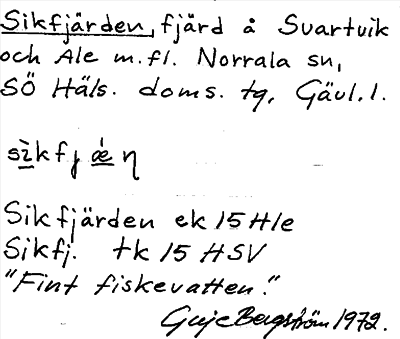 Sikfjärden, fjärd å Svartvik
och Ale m.fl. Norrala sn,
SÖ Häls. doms. tg, Gävl. l.
sìkfjǽη
Sikfjärden ek 15 H1e
Sikfj. tk 15 HSV
"Fint fiskevatten."
Bergström 1972.